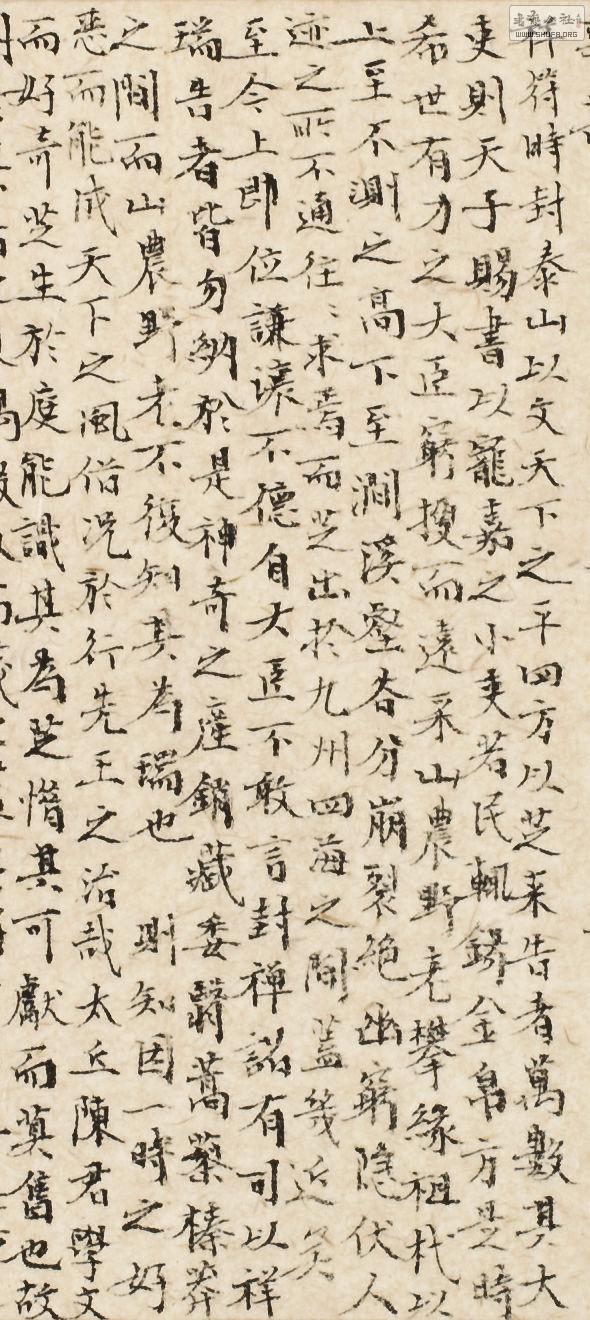 祥符時封泰山以文天下之平四方以芝來告者萬數其大
吏則天子賜書以寵嘉之小吏若民輒錫金帛方是時
希世有力之大臣窮搜而遠采山農野老攀緣狙杙以
上至不測之高下至澗溪壑谷分崩裂絕幽窮隱伏人
迹之所不通往〻求焉而芝出於九州四海之間蓋幾近矣
至今上即位謙讓不德自大臣不敢言封禪諸有可以祥
瑞告者皆勿納於是神奇之產銷藏委翳蒿藜榛莽
之間而山農野老不復知其為瑞也 則知因一時之好
惡而能成天下之風俗況於行先王之治哉太丘陳君學文
而好奇芝生於庭能識其為芝惜其可獻而莫售也故
WWW.SHUFA.ORG